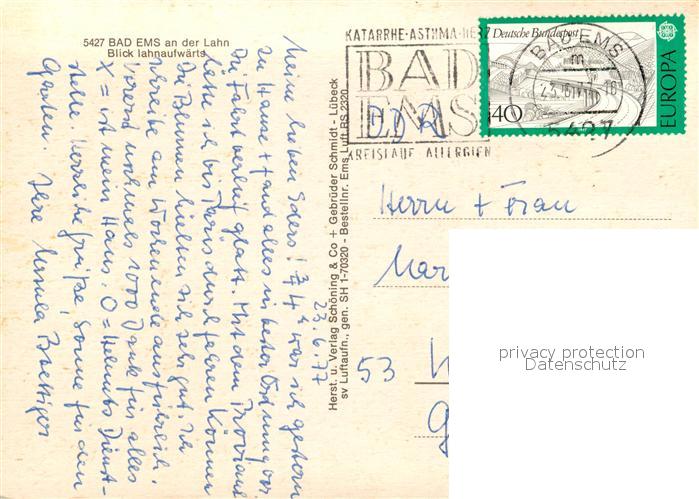 5427 BAD EMS an der Lahn
Blick lahnaufwärts
KATARRHE·ASTHMA·HERZ
BAD
EMS
KREISLAUF ALLERGIEN
Deutsche Bundespost
40
EUROPA
BAD EMS
m
5427
DDR
Herst. u. Verlag Schöning & Co + Gebrüder Schmidt - Lübeck
sv Luftaufn., gen. SH 1-70320 - Bestellnr. Ems Luft RS 2320
23.6.77
Meine lieben ! 3/4 h war ich gestern
zu Hause + fand alles in bester Ordnung vor.
Die Fahrt verlief glatt. Mit dem Proviant
hätte ich bis Paris durchfahren können
Die Blumen hielten sich sehr gut. Ich
schreibe am Wochenende ausführlich.
Vorerst nochmals 1000 Dank für alles
X = ist mein Haus. O = Helmuts Dienst-
stelle. Herzliche Grüße, Sonne für den
Garten. Ihre Ursula
Herrn + Frau
Mar
53
privacy protection
Datenschutz